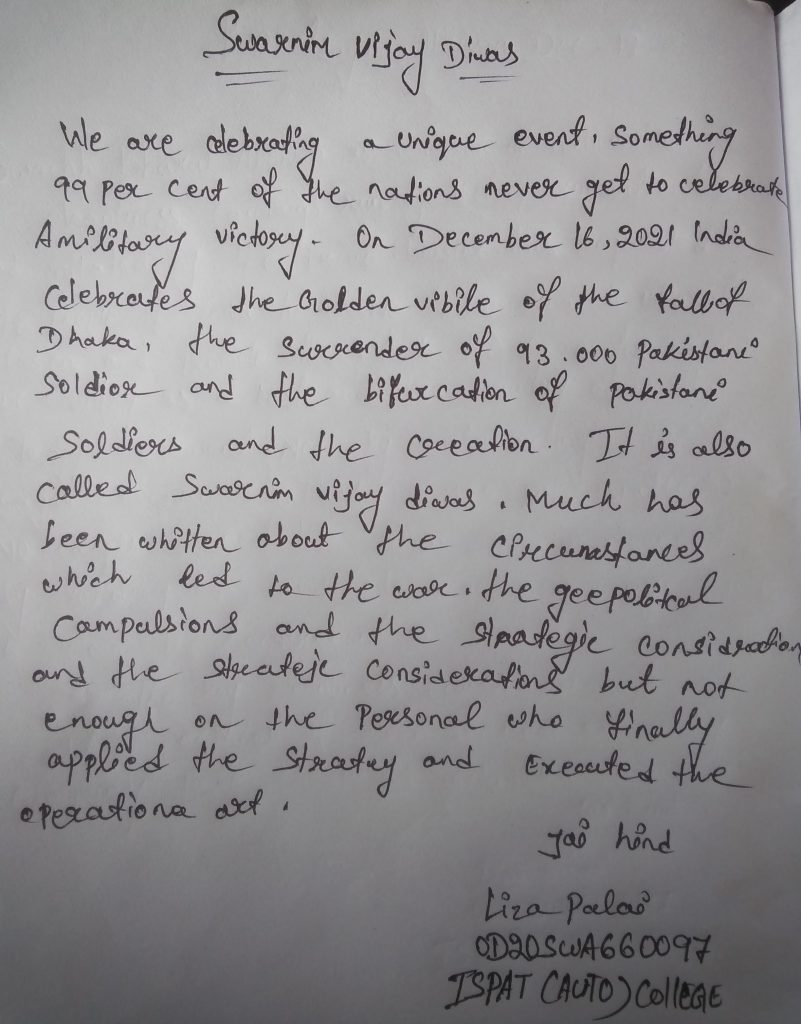 Swarnim Vijay Diwas
We are celebrating a unique event, something
99 per cent of the nations never get to celebrate
A military victory. On December 16, 2021 India
Celebrates the Golden vibile of the fall of
Dhaka, the surrender of 93.000 Pakistani
Soldior and the bifurcation of pakistani
Soldiers and the creeation. It is also
called Swarnim vijay diwas. Much has
been whitten about the circumstances
which led to the war. the geepolitcal
Compulsions and the straategic consideration
and the streatejc considerations but not
enough on the Personal who finally
applied the Stratey and Executed the
operationa art.
Jai hind
Liza Palai
OD20SWA660097
ISPAT (AUTO) COllEGE